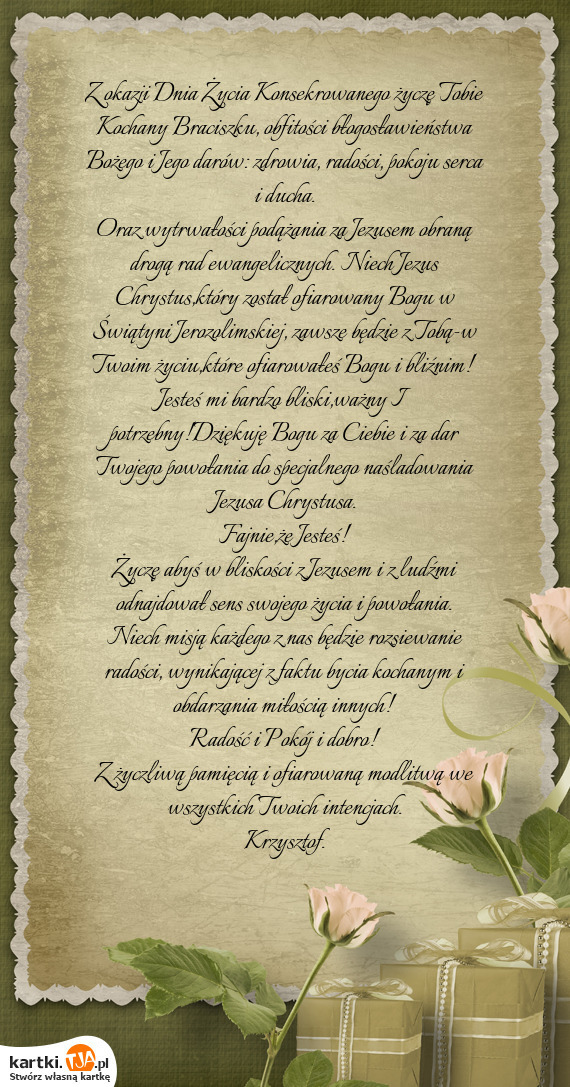 Z okazji Dnia Życia Konsekrowanego życzę Tobie
Kochany Braciszku, obfitości błogosławieństwa
Bożego i Jego darów: zdrowia, radości, pokoju serca
i ducha.
Oraz wytrwałości podążania za Jezusem obraną
drogą rad ewangelicznych. Niech Jezus
Chrystus,który został ofiarowany Bogu w
Świątyni Jerozolimskiej, zawsze będzie z Tobą-w
Twoim życiu,które ofiarowałeś Bogu i bliźnim!
Jesteś mi bardzo bliski,ważny I
potrzebny!Dziękuję Bogu za Ciebie i za dar
Twojego powołania do specjalnego naśladowania
Jezusa Chrystusa.
Fajnie,że Jesteś!
Życzę abyś w bliskości z Jezusem i z ludźmi
odnajdował sens swojego życia i powołania.
Niech misją każdego z nas będzie rozsiewanie
radości, wynikającej z faktu bycia kochanym i
obdarzania miłością innych!
Radość i Pokój i dobro!
Z życzliwą pamięcią i ofiarowaną modlitwą we
wszystkich Twoich intencjach.
Krzysztof.
kartki.TJA.pl
Stwórz własną kartkę